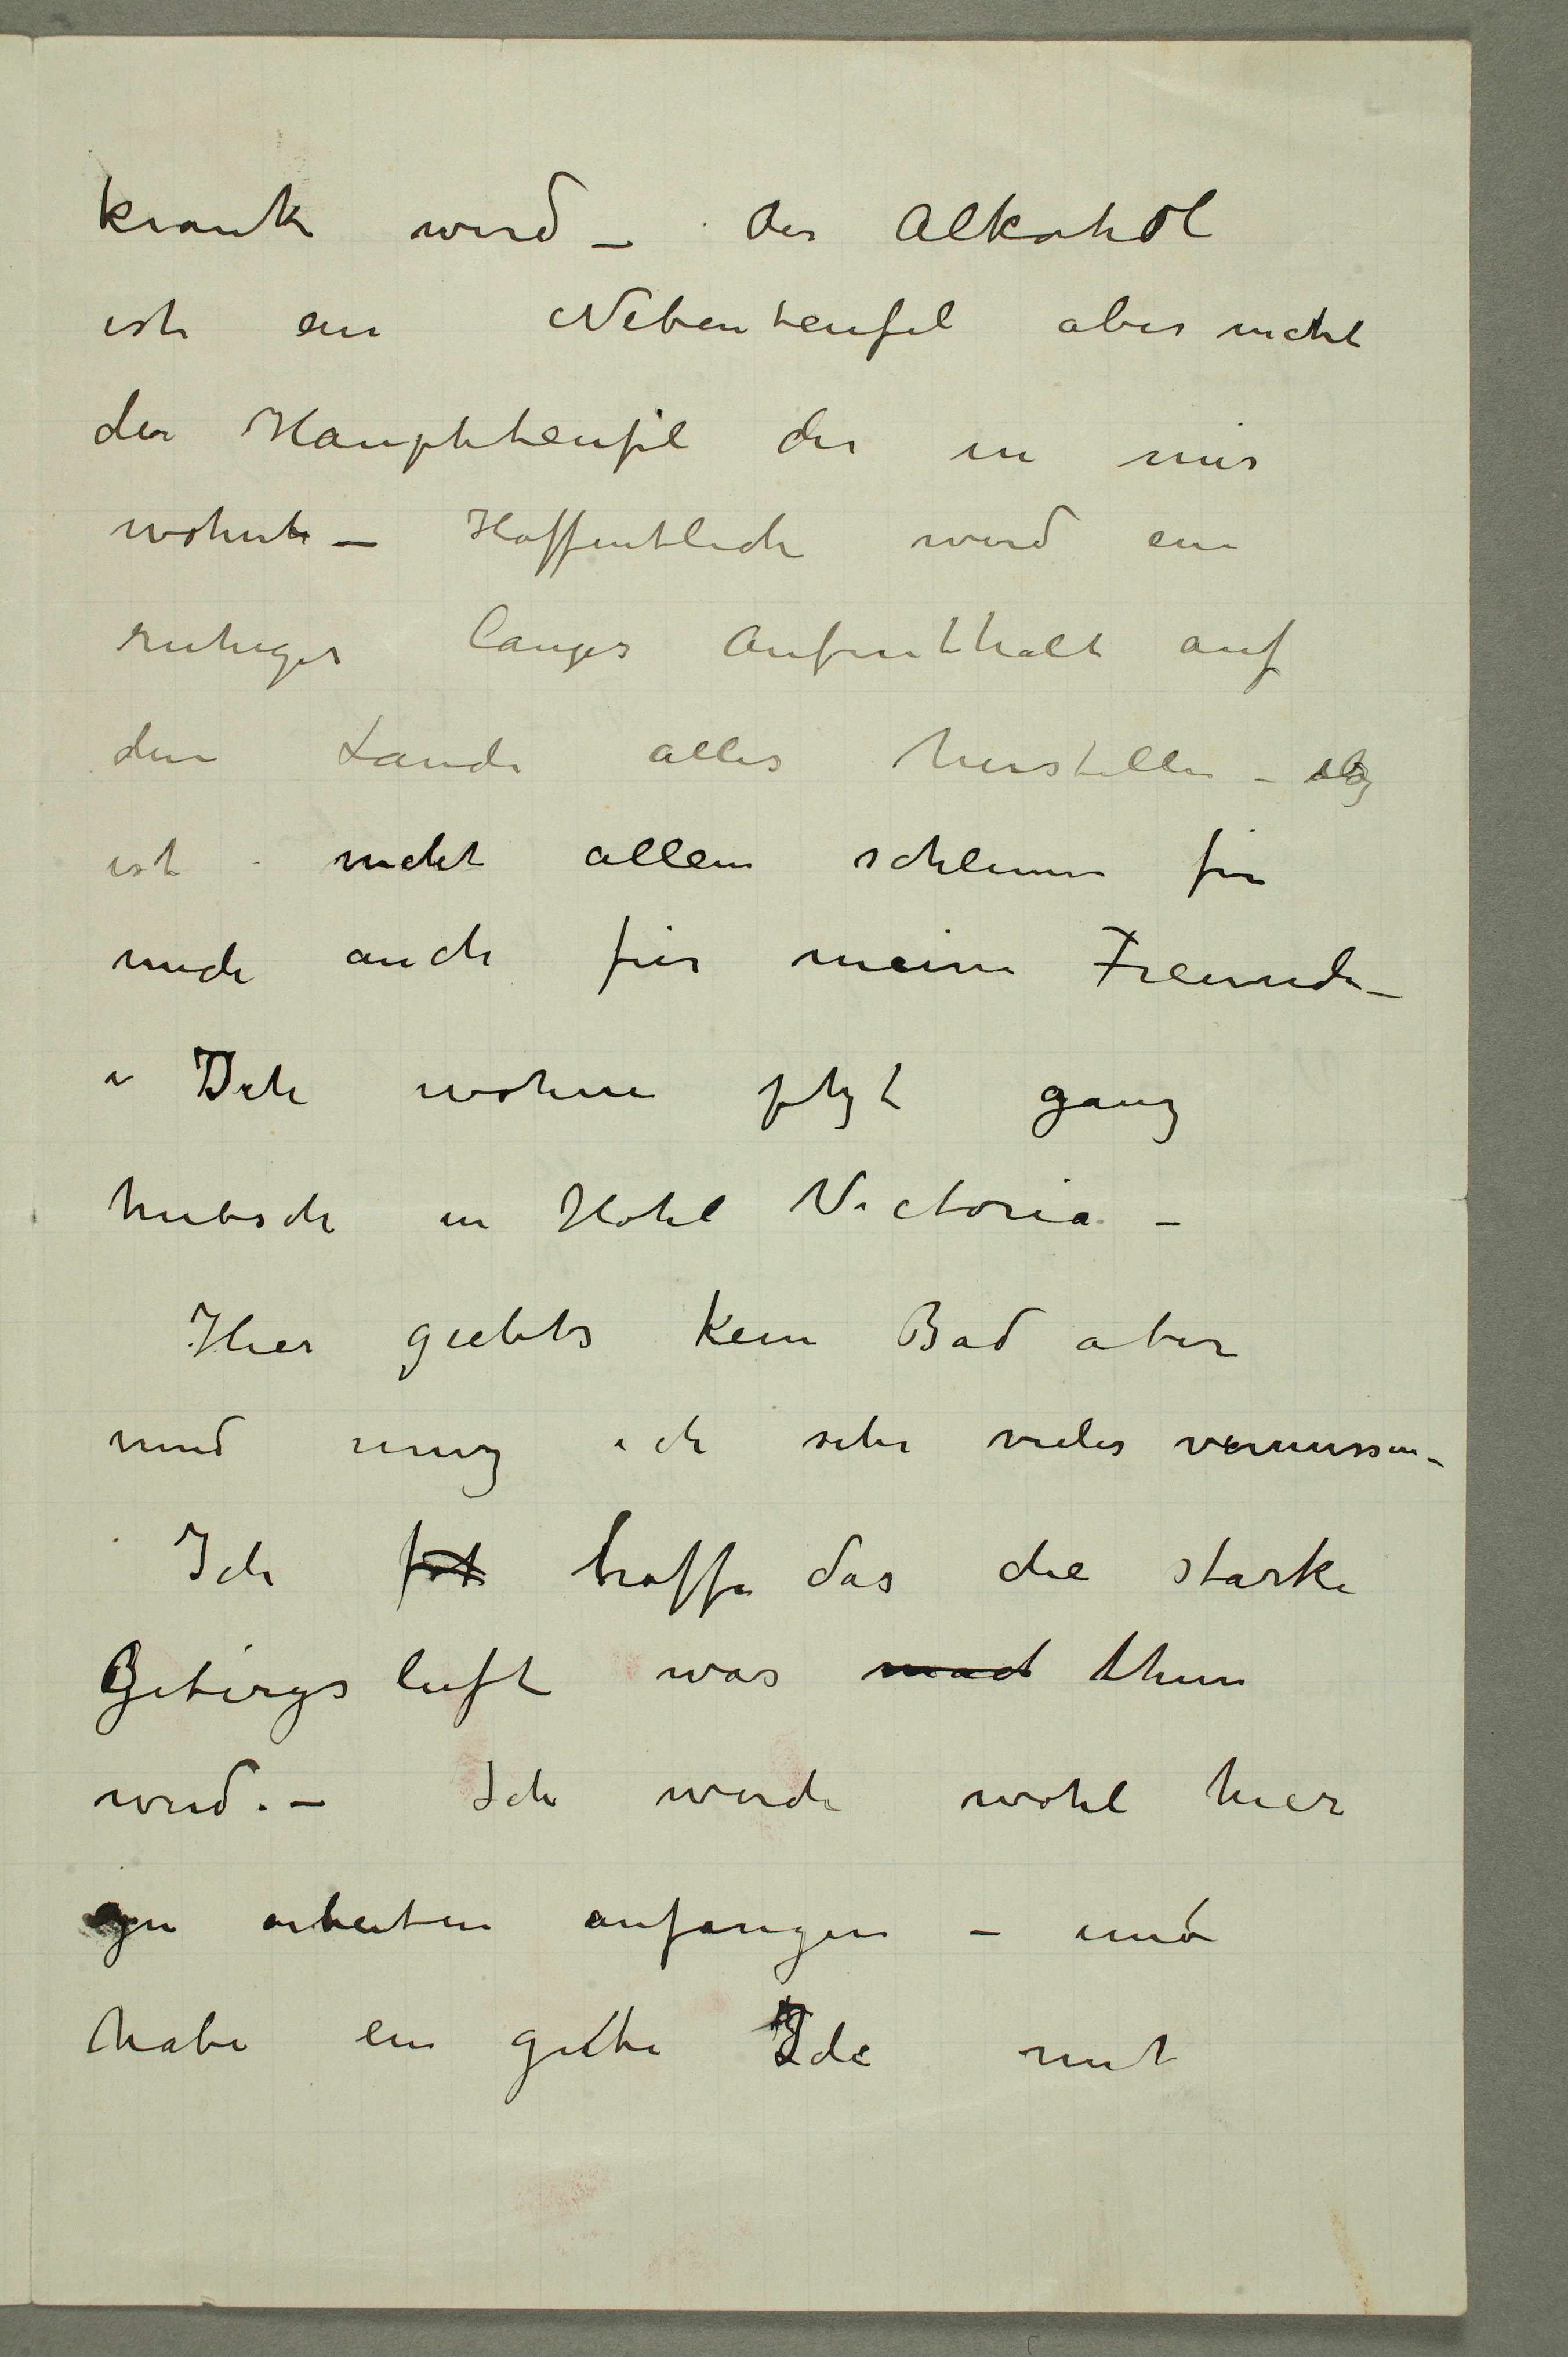 krank wird – der Alkohol
ist ein Nebenteufel aber nicht
der Hauptteufel der in mir
wohnt – Hoffentlich wird ein
ruhiger langer Aufenthalt auf
dem Lande alles herstellen –
ist nicht allein schlimm für
mich auch für meine Freunde –
Ich wohne jetzt ganz
hubsch in Hotel Victoria –
Hier giebts kein Bad aber
und muß ich sehr vieles vermissen –
Ich hoffe das die starke
Gebirgsluft was thun
wird. – Ich werde wohl hier
zu arbeiten anfangen – und
habe ein gute Ide mit